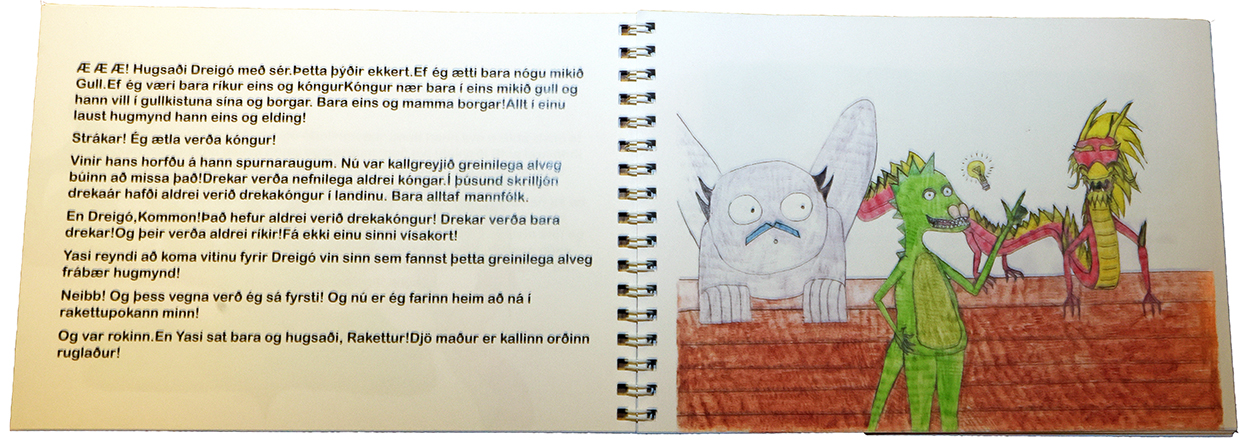 Æ Æ Æ! Hugsaði Dreigó með sér.Þetta þýðir ekkert.Ef ég ætti bara nógu mikið
Gull.Ef ég væri bara ríkur eins og kóngurKóngur nær bara í eins mikið gull og
hann vill í gullkistuna sína og borgar. Bara eins og mamma borgar!Allt í einu
laust hugmynd hann eins og elding!
Strákar! Ég ætla verða kóngur!
Vinir hans horfðu á hann spurnaraugum. Nú var kallgreyjið greinilega alveg
búinn að missa það!Drekar verða nefnilega aldrei kóngar.Í þúsund skrilljón
drekaár hafði aldrei verið drekakóngur í landinu. Bara alltaf mannfólk.
En Dreigó,Kommon!Það hefur aldrei verið drekakóngur! Drekar verða bara
drekar!Og þeir verða aldrei ríkir!Fá ekki einu sinni vísakort!
Yasi reyndi að koma vitinu fyrir Dreigó vin sinn sem fannst þetta greinilega alveg
frábær hugmynd!
Neibb! Og þess vegna verð ég sá fyrsti! Og nú er ég farinn heim að ná í
rakettupokann minn!
Og var rokinn.En Yasi sat bara og hugsaði, Rakettur!Djö maður er kallinn orðinn
ruglaður!